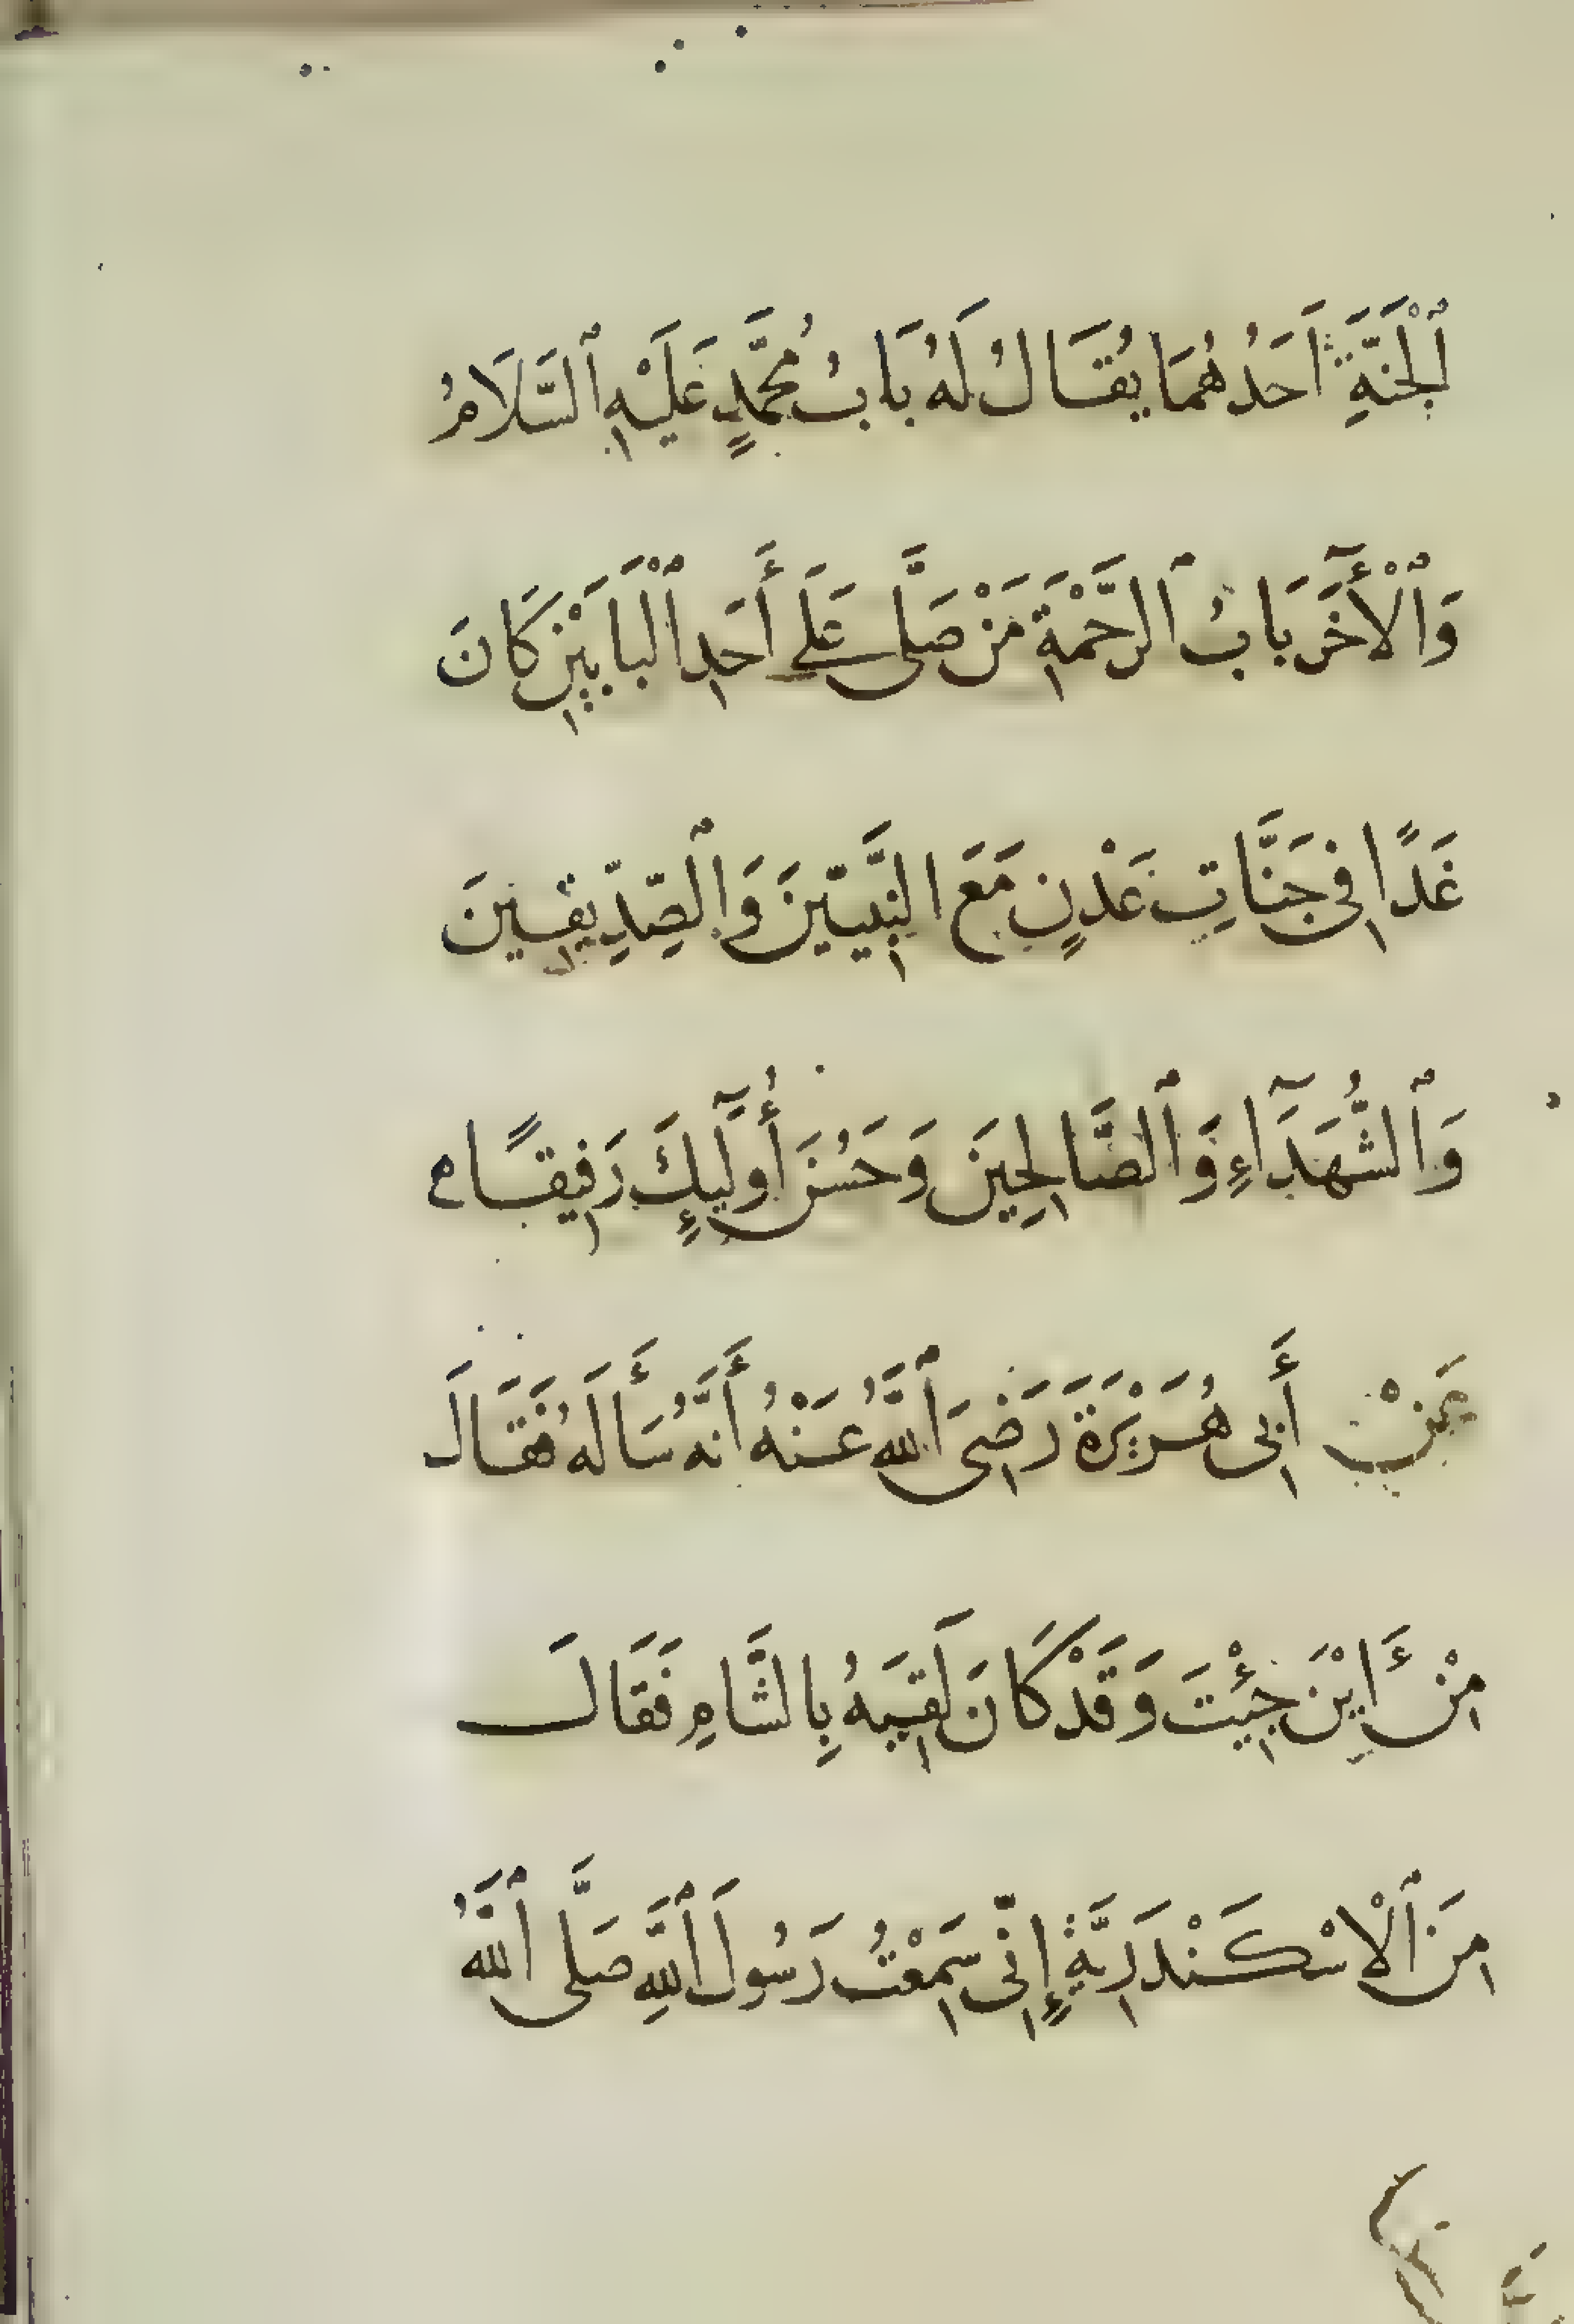 ٱلْجَنَّةِ أَحَدُهُمَا يُقَالُ لَهُ بَابُ مُحَمَّدٍ عَلَيْهِ ٱلسَّلَامُ
وَٱلْأَخَرُ بَابُ ٱلرَّحْمَةِ مَنْ صَلَّى عَلَى أَحَدِ ٱلْبَابَيْنِ كَانَ
غَدًا فِى جَنَّاتِ عَدْنٍ مَعَ النَّبِيِّينَ وَٱلصِّدِّيقِينَ
وَٱلشُّهَدَآءِ وَٱلصَّالِحِينَ وَحَسُنَ أُولَٰٓئِكَ رَفِيقًا ع
عَنْ أَبِى هُرَيْرَةَ رَضِىَ ٱللَّهُ عَنْهُ أَنَّهُ سَأَلَهُ فَقَالَ
مِنْ أَيْنَ جِئْتَ وَقَدْ كَانَ لَقِيَهُ بِالشَّامِ فَقَالَ
مِنَ ٱلْاسْكَنْدَرِيَّةِ إِنِّى سَمِعْتُ رَسُولَ ٱللَّهِ صَلَّى ٱللَّهُ